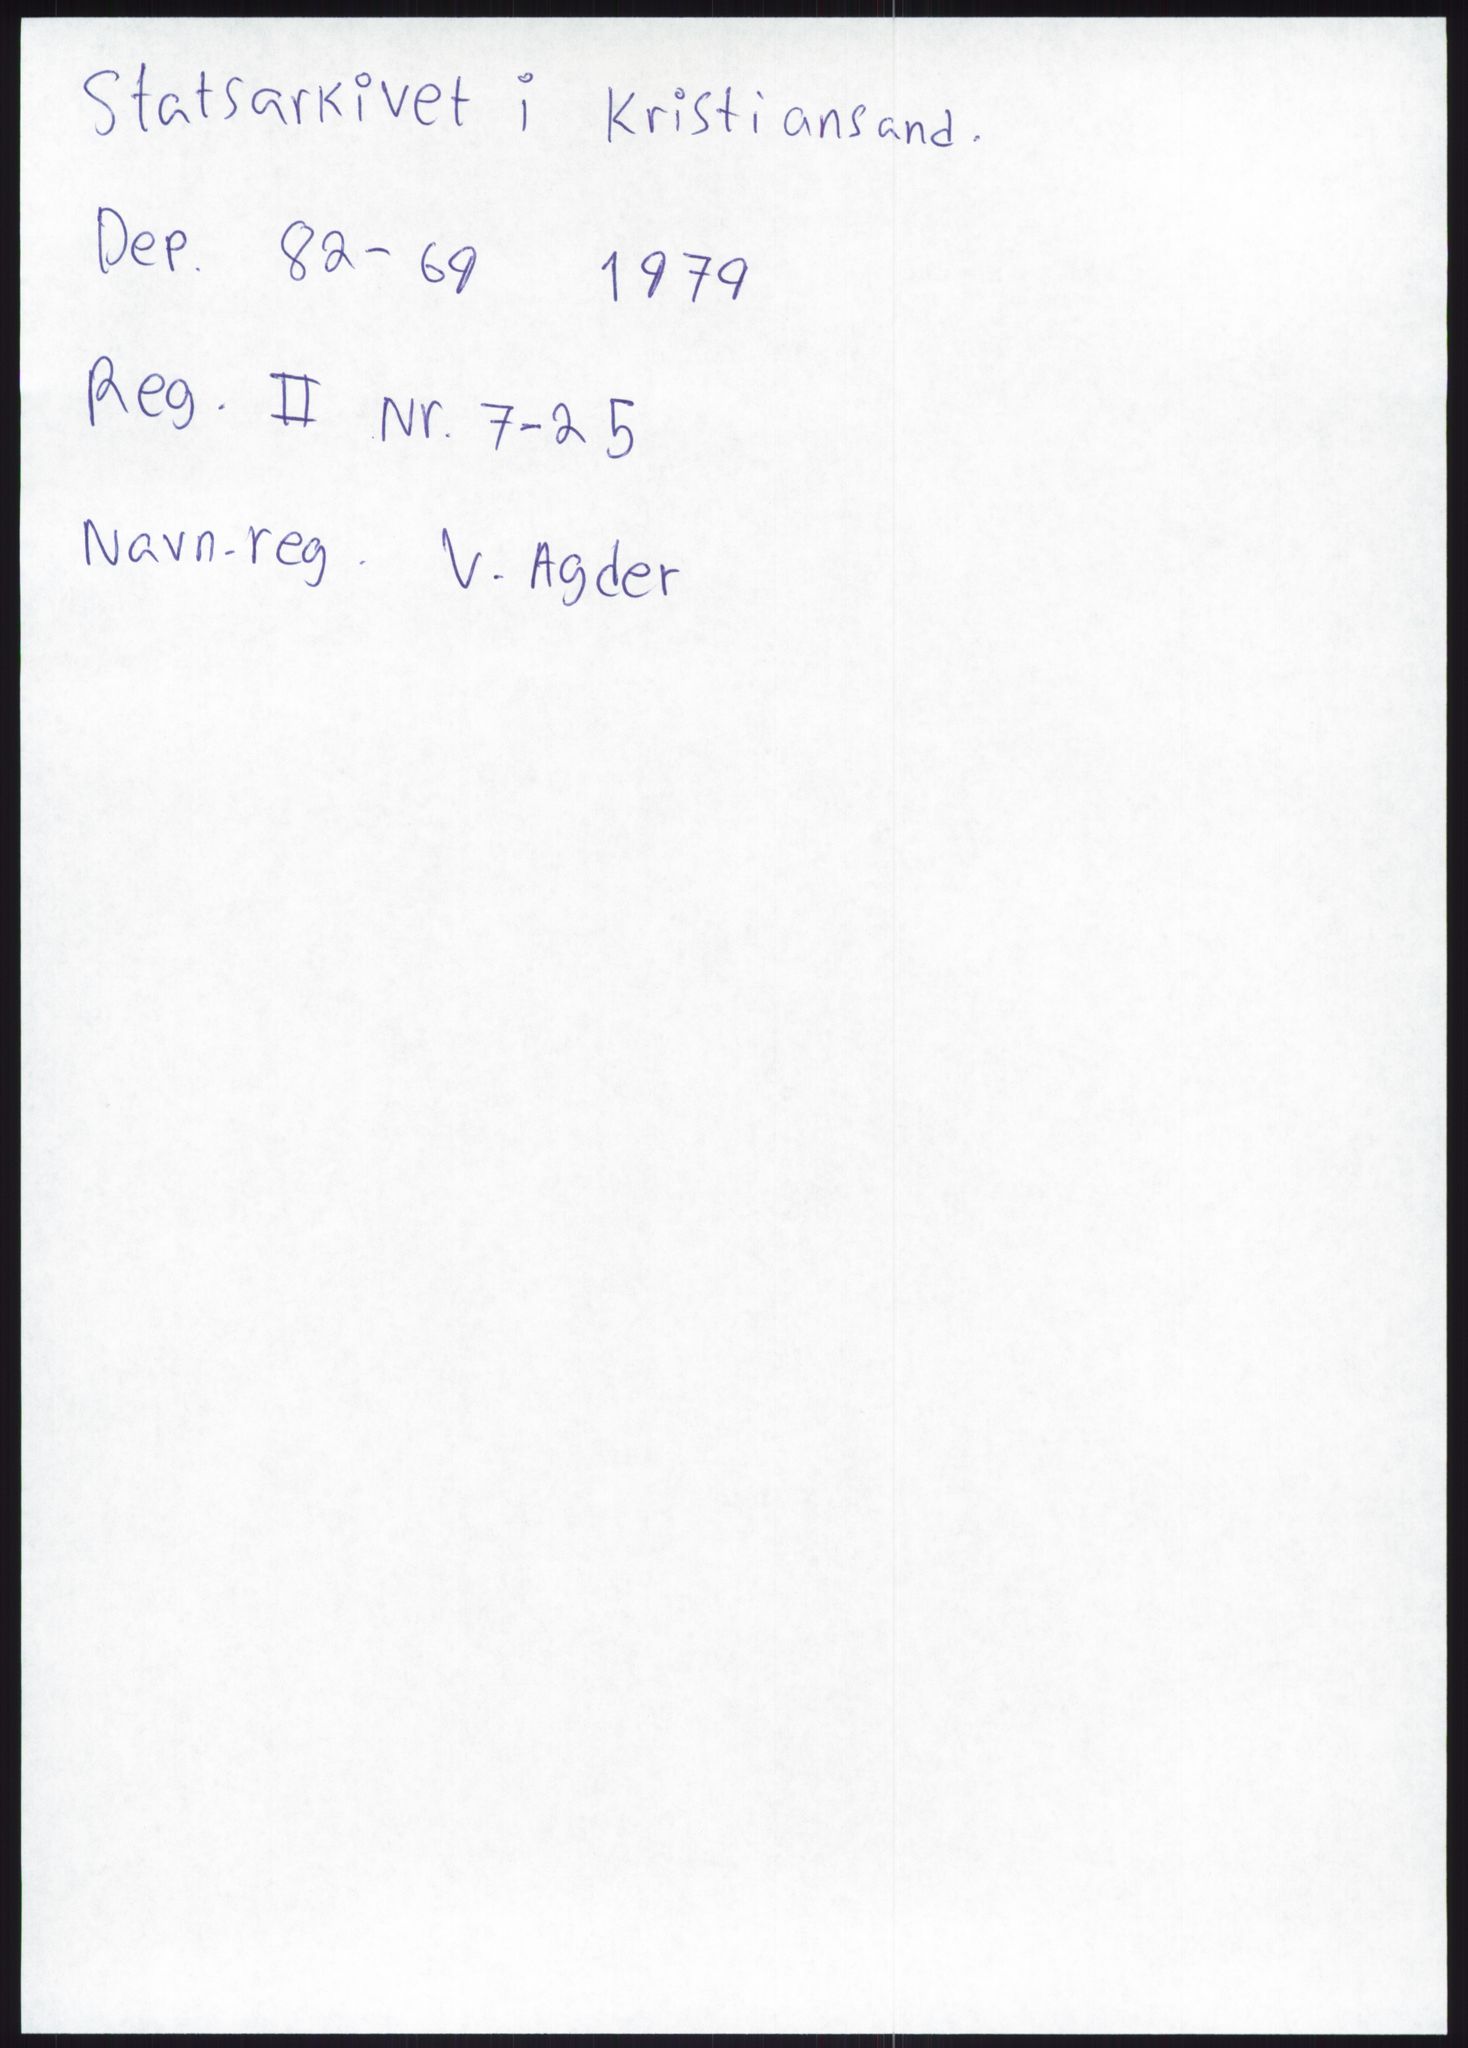 Statsarkivet i Kristiansand.
Dep. 82-69 1979
Reg. II Nr. 7-25
Navn-reg. V. Agder